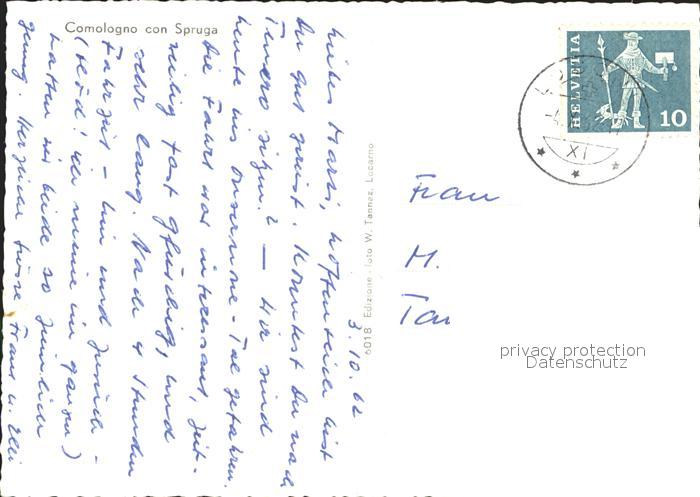 Comologno con Spruga
HELVETIA
10
XI
6018 Edizione - foto W. Tannaz, Locarno
3.10.62
Liebes Marti, hoffentlich bist
Du gut gereist. Konntest Du nach
Tenero sitzen? — Wir sind
heute ins Onsernone-Tal gefahren.
Die Fahrt war interessant, zeit-
weilig fast gfürchig, und
sehr lang. Nach 4 Stunden
Fahrzeit - hin und zurück -
(blöd! wir meine im ganzen)
hatten wir beide so ziemlich
genug. Herzliche Grüsse Frans u. Elsi
Frau
M.
Tan
privacy protection
Datenschutz